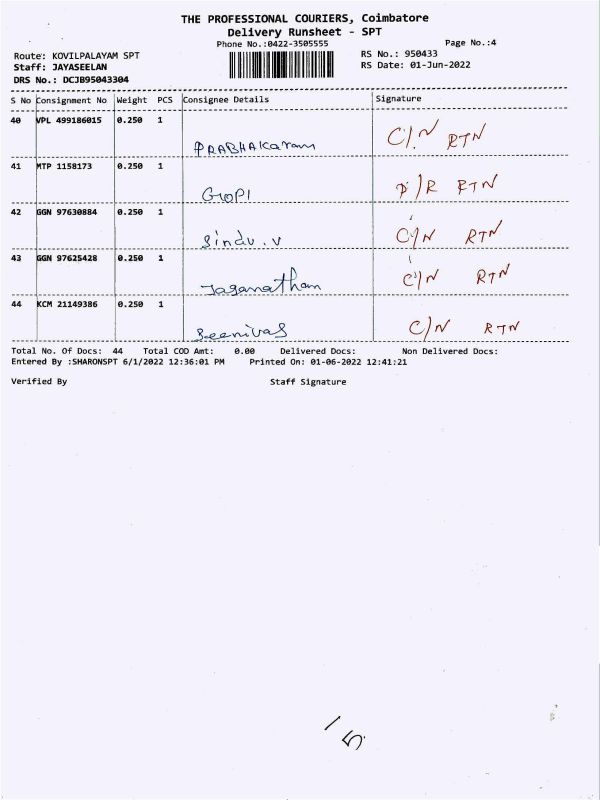 THE PROFESSIONAL COURIERS, Coimbatore
Delivery Runsheet - SPT
Phone No.:0422-3505555
Page No.:4
Route: KOVILPALAYAM SPT
RS No.: 950433
Staff: JAYASEELAN
RS Date: 01-Jun-2022
DRS No.: DCJB95043304
S No Consignment No Weight PCS Consignee Details Signature
40 VPL 499186015 0.250 1
PRABHAKaram C/N RTN
41 MTP 1158173 0.250 1
GOPI D/R RTN
42 GGN 97630884 0.250 1
Sindu.v C/N RTN
43 GGN 97625428 0.250 1
Jaganatham C/N RTN
44 KCM 21149386 0.250 1
Seenivas C/N RTN
Total No. Of Docs: 44 Total COD Amt: 0.00 Delivered Docs: Non Delivered Docs:
Entered By :SHARONSPT 6/1/2022 12:36:01 PM Printed On: 01-06-2022 12:41:21
Verified By Staff Signature